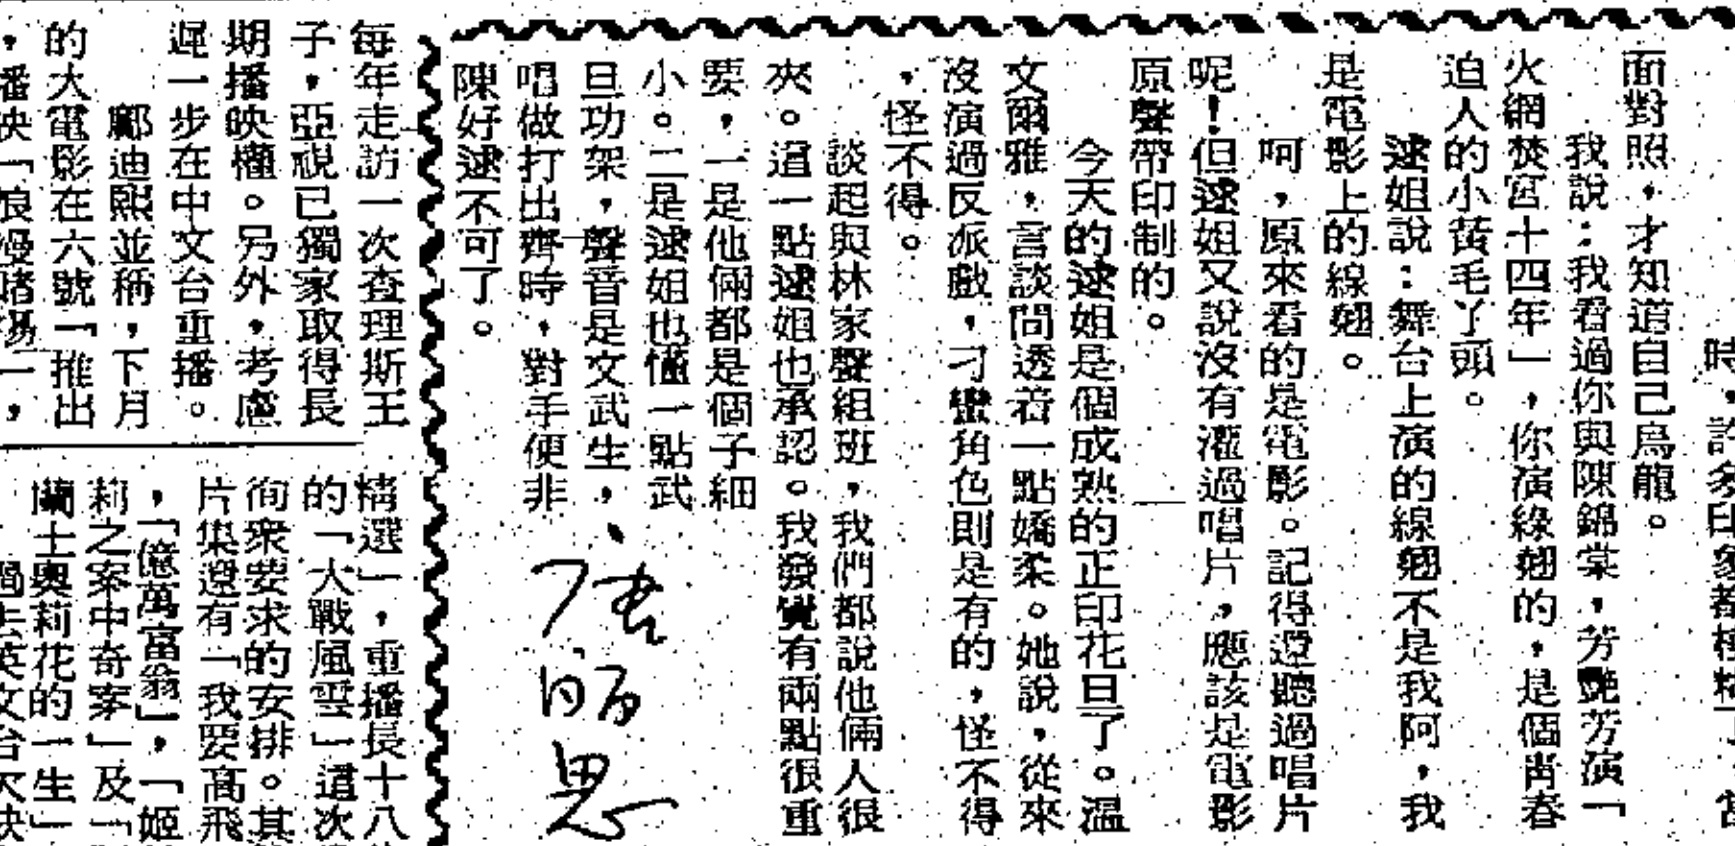 面對照，才知道自己烏龍。
我說：我看過你與陳錦棠，芳艷芳演「
火網焚宮十四年」，你演綠翹的，是個青春
迫人的小黃毛丫頭。
逑姐說：舞台上演的綠翹不是我阿，我
是電影上的綠翹。
呵，原來看的是電影。記得還聽過唱片
呢！但逑姐又說沒有灌過唱片，應該是電影
原聲帶印制的。
今天的逑姐是個成熟的正印花旦了。溫
文爾雅，言談間透着一點嬌柔。她說，從來
沒演過反派戲，刁蠻角色則是有的，怪不得
，怪不得。
談起與林家聲組班，我們都說他倆人很
夾。這一點逑姐也承認。我發覺有兩點很重
要，一是他倆都是個子細
小。二是逑姐也懂一點武
旦功架，聲音是文武生，
唱做打出齊時，對手便非
陳好逑不可了。
每年走訪一次查理斯王
子，亞視已獨家取得長
期播映權。另外，考慮
遲一步在中文台重播。
鄺迪熙並稱，下月
的大電影在六號「推出
精選」，重播長十八
的「大戰風雲」這次
徇衆要求的安排。其
片集還有「我要高飛
，「億萬富翁」，「姬
莉之案中奇案」及「
蘭士奧莉花的一生」